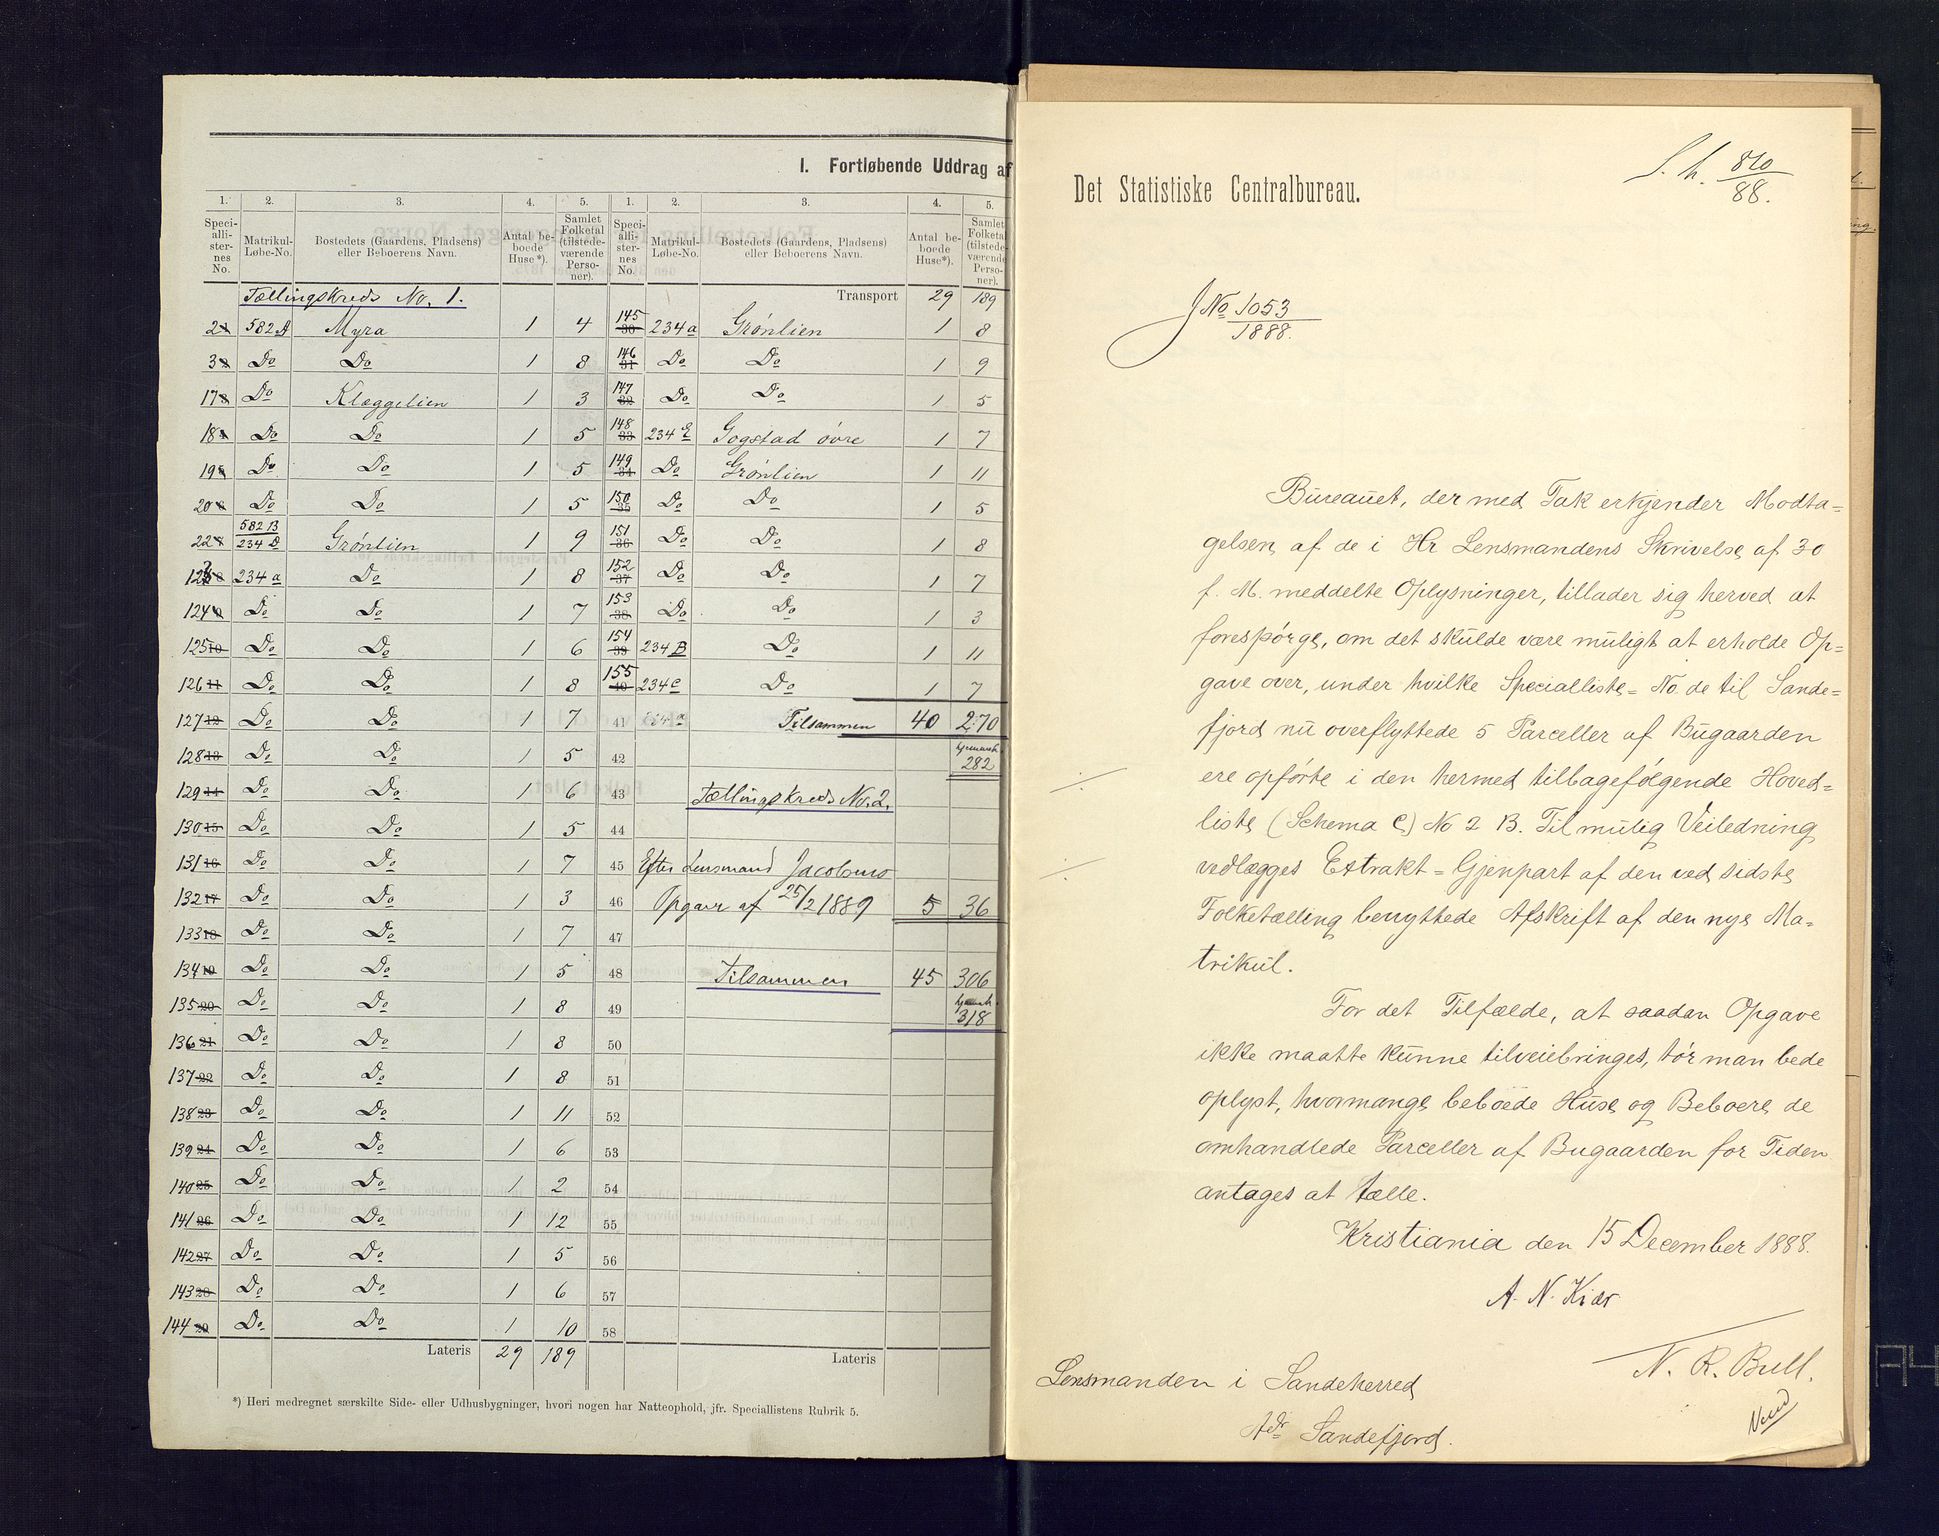 I. Fortløbende Uddrag af
1. 2. 3. 4. 5. 1. 2. 3. 4. 5.
Speciallisternes No. Matrikul-Løbe-No. Bostedets (Gaardens, Pladsens) eller Beboerens Navn. Antal beboede Huse*). Samlet Folketal (tilstedeværende Personer). Speciallisternes No. Matrikul-Løbe-No. Bostedets (Gaardens, Pladsens) eller Beboerens Navn. Antal beboede Huse*). Samlet Folketal (tilstedeværende Personer).
Tællingskreds No. 1. Transport 29 189
2 582 A Myra 1 4 145 30 234a Grønlien 1 8
3 Do Do 1 8 146 31 Do Do 1 9
17 Do Klæggelien 1 3 147 32 Do Do 1 5
18 Do Do 1 5 148 33 234 E Gogstad øvre 1 7
19 Do Do 1 5 149 34 Do Grønlien 1 11
20 Do Do 1 5 150 35 Do Do 1 5
22 582 B 234 D Grønlien 1 9 151 36 Do Do 1 8
123 234 a Do 1 8 152 37 Do Do 1 7
124 Do Do 1 7 153 38 Do Do 1 3
125 10 Do Do 1 6 154 39 234 B Do 1 11
126 11 Do Do 1 8 155 40 234 C Do 1 7
127 12 Do Do 1 7 41 Tilsammen 40 270
128 13 Do Do 1 5 42 282
129 14 Do Do 1 6 43 Tællingskreds No. 2.
130 15 Do Do 1 5 44
131 16 Do Do 1 7 45 Efter Lensmand Jacobsens
132 17 Do Do 1 3 46 Opgave af 25/2 1889 5 36
133 18 Do Do 1 7 47
134 19 Do Do 1 5 48 Tilsammen 45 306
135 20 Do Do 1 8 49 318
136 21 Do Do 1 8 50
137 22 Do Do 1 8 51
138 23 Do Do 1 11 52
139 24 Do Do 1 6 53
140 25 Do Do 1 2 54
141 26 Do Do 1 12 55
142 27 Do Do 1 5 56
143 28 Do Do 1 6 57
144 29 Do Do 1 10 58
Lateris 29 189 Lateris
*) Heri medregnet særskilte Side- eller Udhusbygninger, hvori nogen har Natteophold, jfr. Speciallistens Rubrik 5.
Det Statistiske Centralbureau.
S. h. 810/88.
J No 1053/1888.
Bureauet, der med Tak erkjender Modta-
gelsen af de i Hr Lensmandens Skrivelse af 30
f. M. meddelte Oplysninger, tillader sig herved at
forespørge, om det skulde være muligt at erholde Op-
gave over, under hvilke Specialliste-No. de til Sande-
fjord nu overflyttede 5 Parceller af Bugaarden
ere opførte i den hermed tilbagefølgende Hoved-
liste (Schema C) No 2 B. Til mulig Veiledning
vedlægges Extrakt-Gjenpart af den ved sidste
Folketælling benyttede Afskrift af den nye Ma-
trikul.
For det Tilfælde, at saadan Opgave
ikke maatte kunne tilveiebringes, tør man bede
oplyst, hvormange beboede Huse og Beboere de
omhandlede Parceller af Bugaarden for Tiden
antages at tælle.
Kristiania den 15 December 1888.
A. N. Kiær
N. R. Bull.
Lensmanden i Sandeherred
Adr Sandefjord.